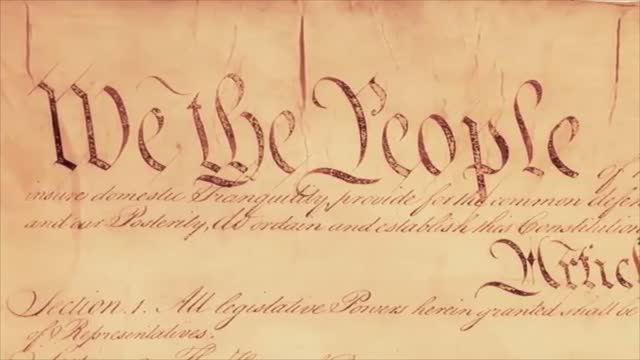 We the People of
insure domestic Tranquility, provide for the common defen
and our Posterity, do ordain and establish this Constitution
Artic
Section. 1. All legislative Powers herein granted shall be
of Representatives.